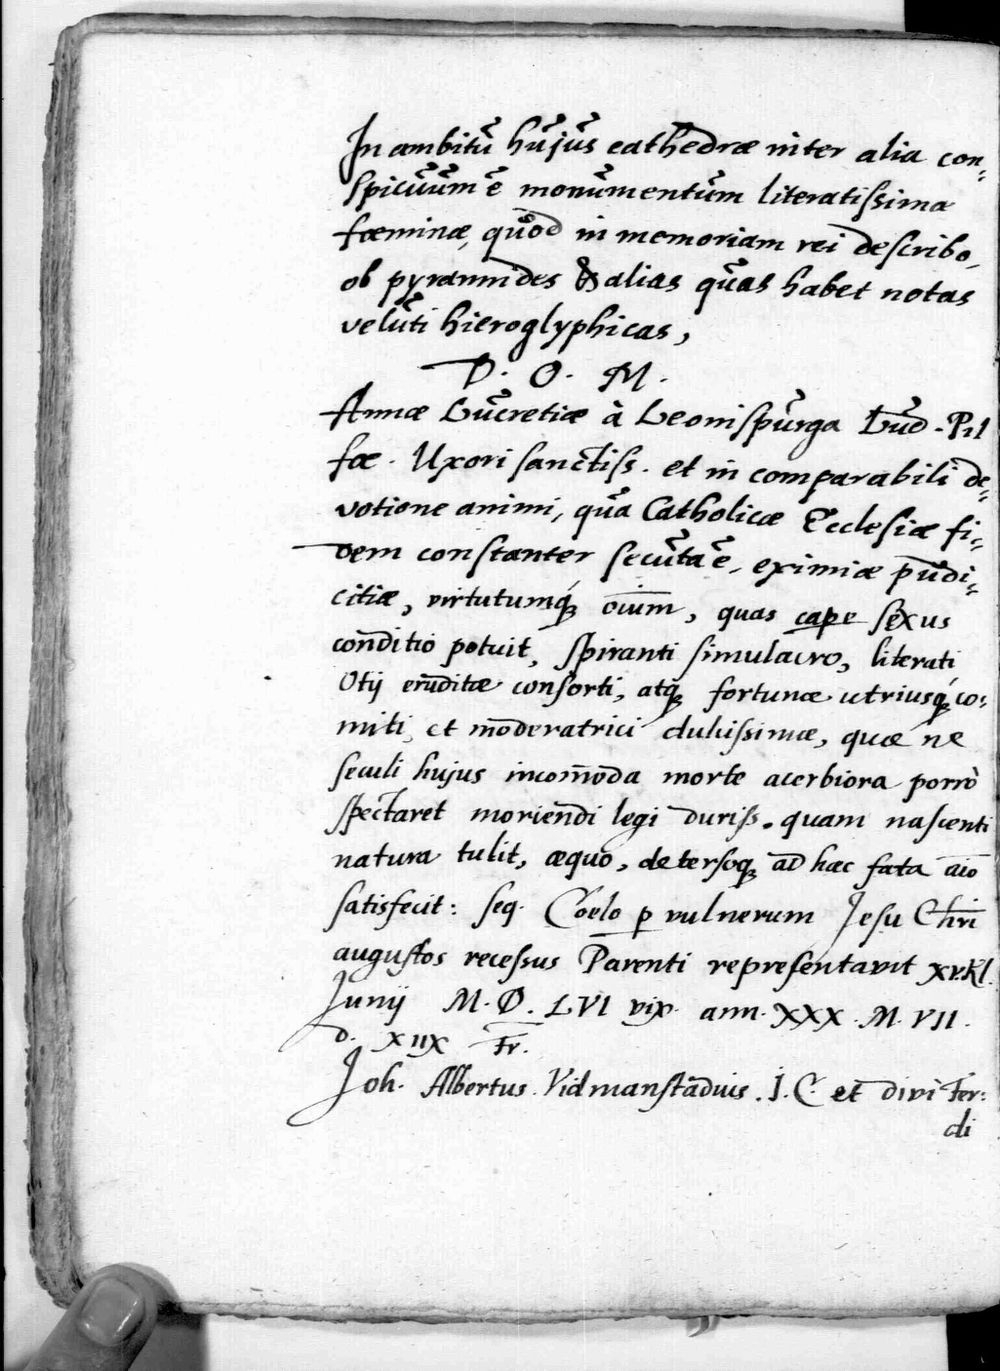 In ambitũ hujus cathedræ inter alia con-
spicuum ẽ monumentum literatissimæ
fœminæ, quod in memoriam rei describo,
ob pyramides & alias quas habet notas
veluti hieroglyphicas,
D. O. M.
Annæ Lucretiæ à Leonispurga Lud. Pil
fæ. Uxori sanctiss. et in comparabili de-
votione animi, qua Catholicæ Ecclesiæ fi-
dem constanter secuta ẽ, eximiæ pudi-
citiæ, virtutumq́; oīum, quas cape sexus
conditio potuit, spiranti simulacro, literati
Otij eruditæ consorti, atq; fortunæ utriusq́; co-
miti, et moderatrici dulcissimæ, quæ ne
seculi hujus incom̄oda morte acerbiora porrò
spectaret moriendi legi duriss. quam nascenti
natura tulit, æquo, detersoq; ad hæc fata aīo
satisfecit: seq. Coelo p vulnerum Jesu Chr̄i
augustos recessus Parenti representavit xv. Kl.
Junij M. D. LVI vix. ann. XXX. M. VII.
D. XIIX Fr.
Joh. Albertus Vidmanstadius. J. C. et divi Fer:
di